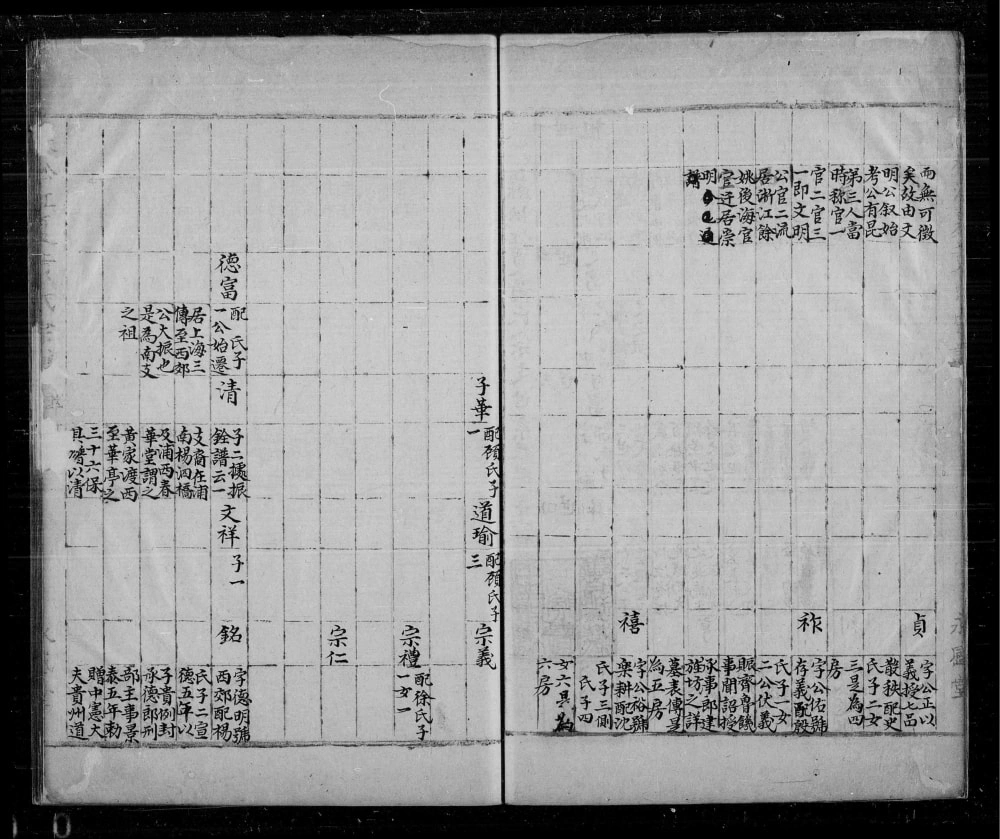 而無可徴
矣故由文
明公叙始
考公有昆
第三人當
時称官一
官二官三
一即文明
公官二流
居浙江餘
姚後海官
官迁居崇
明
譜
貞
字公正以
義授七品
散秩配史
氏子二女
三是為四
房
祚
字公佑號
存義配殷
氏子一女
二公伏義
賑齊魯饑
事聞詔授
承事郎建
旌坊之詳
墓表傳是
為五房
禧
字公裕號
樂耕配沈
氏子三側
氏子四
女六具為
六房
子華
配顾氏子
一
道瑜
配顾氏子
三
宗義
宗禮
配徐氏子
一女一
宗仁
德富
配 氏子
一公始遷
居上海三
傳至西郊
公大振也
是為南支
之祖
清
子二據振
銓譜云一
支裔在甫
南楊泗橋
及浦西春
華堂謂之
黃家渡西
至華亭之
三十六保
具譜以清
文祥
子一
銘
字德明號
西郊配楊
氏子二宣
德五年以
子貴例封
承德郎刑
部主事景
泰五年勅
贈中憲大
夫貴州道